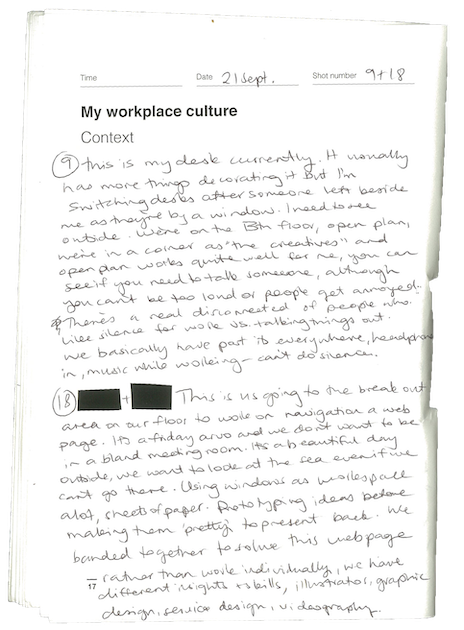 Time Date 21 Sept. Shot number 9+18
My workplace culture
Context
9 this is my desk currently. It usually
has more things decorating it but I'm
switching desks after someone left beside
me as they're by a window. I need to see
outside. We're on the 13th floor, open plan,
we're in a corner as "the creatives" and
open plan works quite well for me, you can
see if you need to talk someone, although
you can't be too loud or people get annoyed.
There's a real disconnected of people who
like silence for work vs. talking things out.
we basically have part is everywhere, headphones
in, music while working - can't do silence.
18 + This is us going to the break out
area on our floor to work on navigation a web
page. Its a friday arvo and we don't want to be
in a bland meeting room. Its a beautiful day
outside, we want to look at the sea even if we
can't go there. Using windows as workspace
alot, sheets of paper. Prototyping ideas before
making them 'pretty' to present back. We
banded together to solve this webpage
rather than work individually, we have
17 different insights + skills, illustrator, graphic
design, service design, videography.